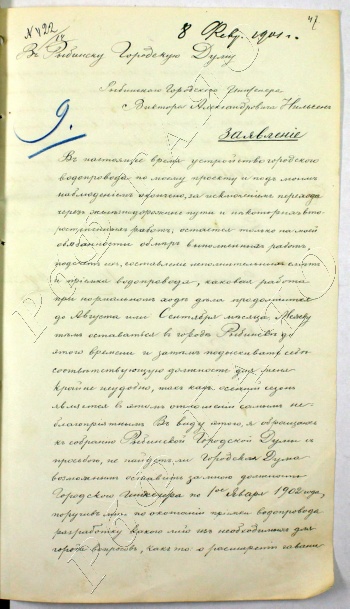 47
№ 422
8 Февр. 1901 г.
Въ Рыбинскую Городскую Думу
Рыбинскаго Городского Инженера
Виктора Александровича Нильсенъ
9.
Заявленіе
Въ настоящее время устройство городского
водопровода по моему проекту и подъ моимъ
наблюденіемъ окончено, за исключеніемъ перехода
черезъ желѣзнодорожные пути и нѣкоторыхъ вто
ростепенныхъ работъ; остается только на моей
обязанности обмѣръ выполненныхъ работъ,
подсчетъ ихъ, составленіе исполнительной смѣты
и пріемка водопровода, каковая работа
при нормальномъ ходѣ дѣла продолжится
до Августа или Сентября мѣсяца. Между
тѣмъ оставаться въ городѣ Рыбинскѣ до
этого времени и затѣмъ подыскивать себѣ
соотвѣтствующую должность для меня
крайне неудобно, такъ какъ осенній сезонъ
является въ этомъ отношеніи самымъ не-
благопріятнымъ. Въ виду этого, я обращаюсь
къ собранію Рыбинской Городской Думы съ
просьбою, не найдетъ ли Городская Дума
возможнымъ оставить за мною должность
Городского Инженера по 1ое Января 1902 года,
поручивъ мнѣ по окончаніи пріемки водопровода
разработку какого либо изъ необходимыхъ для
города вопросовъ, какъ то о расширеніи гавани